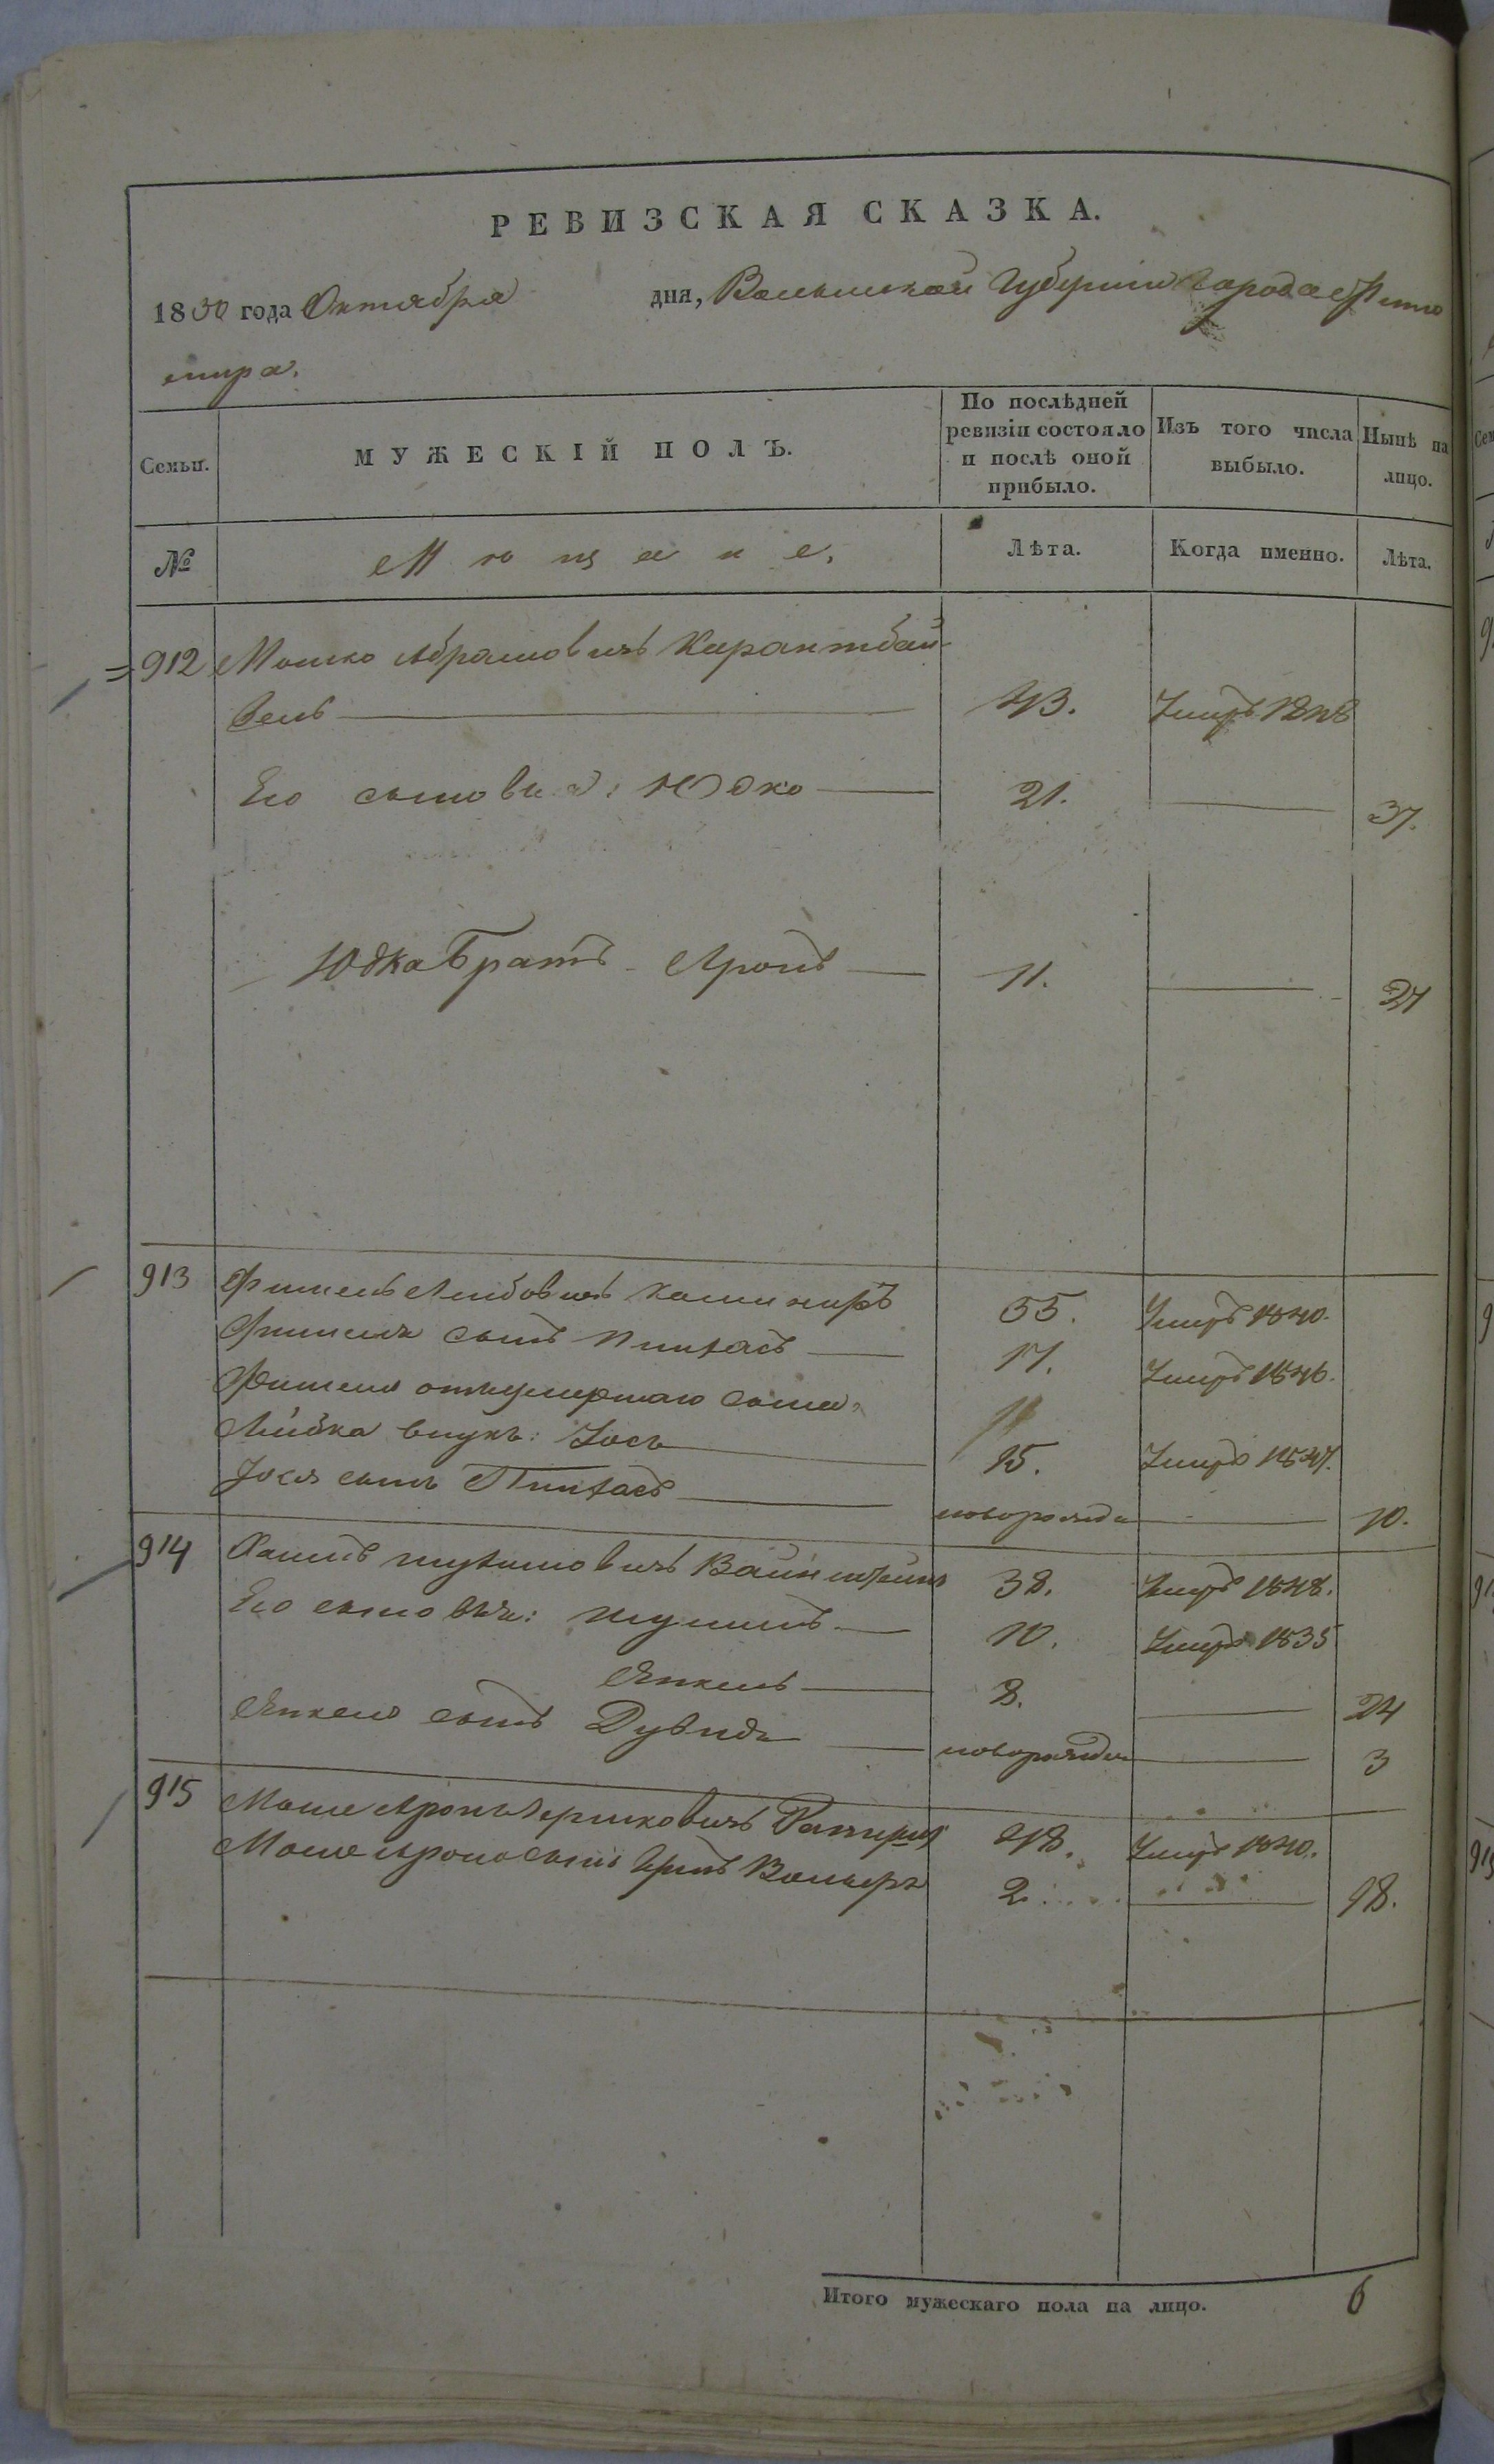 РЕВИЗСКАЯ СКАЗКА.
1850 года Октября дня, Волынской Губернии Города Жито
мира.
Семьи. МУЖЕСКІЙ ПОЛЪ. По послѣдней ревизіи состояло и послѣ оной прибыло. Изъ того числа выбыло. Нынѣ на лицо.
№ Мѣщане. Лѣта. Когда именно. Лѣта.
912 Мошко Абрамовичъ Карантбай-
вель 43. Умеръ 1848
Его сыновья: Юдко 21. 37.
Юдка Братъ Аронъ 11. 27
913 Фишель Лейбовичъ 55. Умеръ 1840.
Фишеля сынъ Пинхасъ 17. Умеръ 1846.
Фишеля отъ умершаго сына
Лейбка внукъ: Іось 15. Умеръ 1847.
Іося сынъ Пинхасъ новорожд 10.
914 Вайнштейнъ 38. Умеръ 1848.
Его сыновья: 10. Умеръ 1835
Янкель 8. 24
Янкеля сынъ Дувидъ новорожд 3
915 Моше Аронъ Гершковичъ 48. Умеръ 1840.
Моше Арона сынъ 2 18.
Итого мужескаго пола на лицо. 6